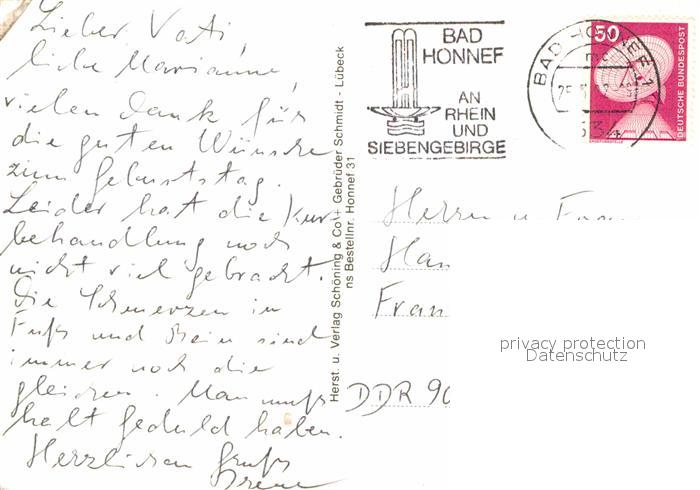 Lieber Vati,
liebe Marianne,
vielen Dank für
die guten Wünsche
zum Geburtstag.
Leider hat die Kur-
behandlung noch
nicht viel gebracht.
Die Schmerzen in
Fuß und Bein sind
immer noch die
gleichen. Man muß
halt Geduld haben.
Herzlichen Gruß
Irene
Herst. u. Verlag Schöning & Co + Gebrüder Schmidt - Lübeck
ns Bestellnr. Honnef 31
BAD
HONNEF
AN
RHEIN
UND
SIEBENGEBIRGE
BAD HONNEF 1
50
DEUTSCHE BUNDESPOST
Herrn u. Frau
Han
Fran
privacy protection
Datenschutz
DDR 90